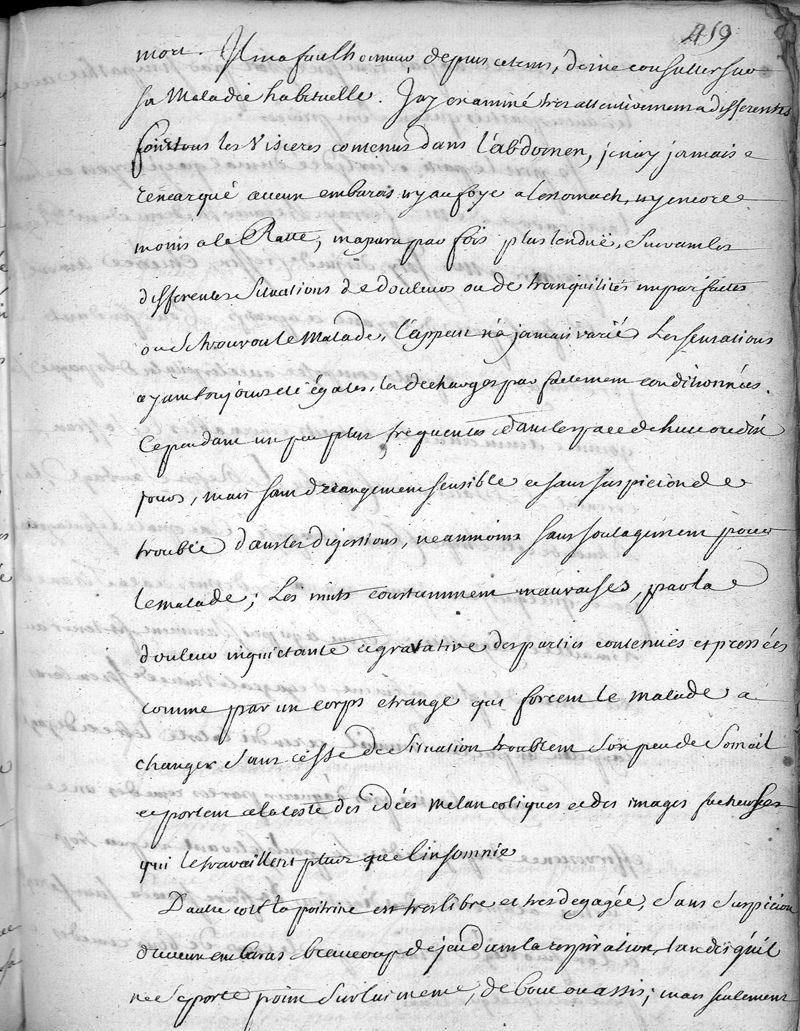 459
mort. Il ma fait lhonneur depuis ce tems, de me consulter sur
sa Maladie habituelle. J'ay examiné tres attentivement a differentes
fois tous les Visceres contenus dans l'abdomen, je n'ay jamais
remarqué aucun embaras ny au foye a lestomach, ny encore
moins a la Ratte, ma paru par fois plus tendüe, suivant les
differentes Situations de douleurs ou de tranquilités imparfaites
ou se trouvou le Malade, l'appetit n'a jamais varié Les sensations
ayant toujours eté égales, les decharges parfaitement conditionnées.
Cependant un peu plus frequentes dans lespace de huit ou dix
jours, mais sans derangement sensible et sans suspicion de
trouble dans les digestions, neanmoins sans soulagement pour
le malade; Les nuits constamment mauvaises, par la
douleur inquietante et gravative des parties contenües et pressées
comme par un corps etrange qui forcent le malade a
changer sans cesse de situation troublent son peu de someil
et portent a la teste des idées melancoliques et des images facheuses
qui le travaillent plus que l'insomnie
D'autre coté la poitrine est tres libre et tres degagée, sans suspicion
d'aucun embaras beaucoup de jeu dans la respiration, tandis quil
ne se porte point sur lui meme, de bout ou assis; mais seulement